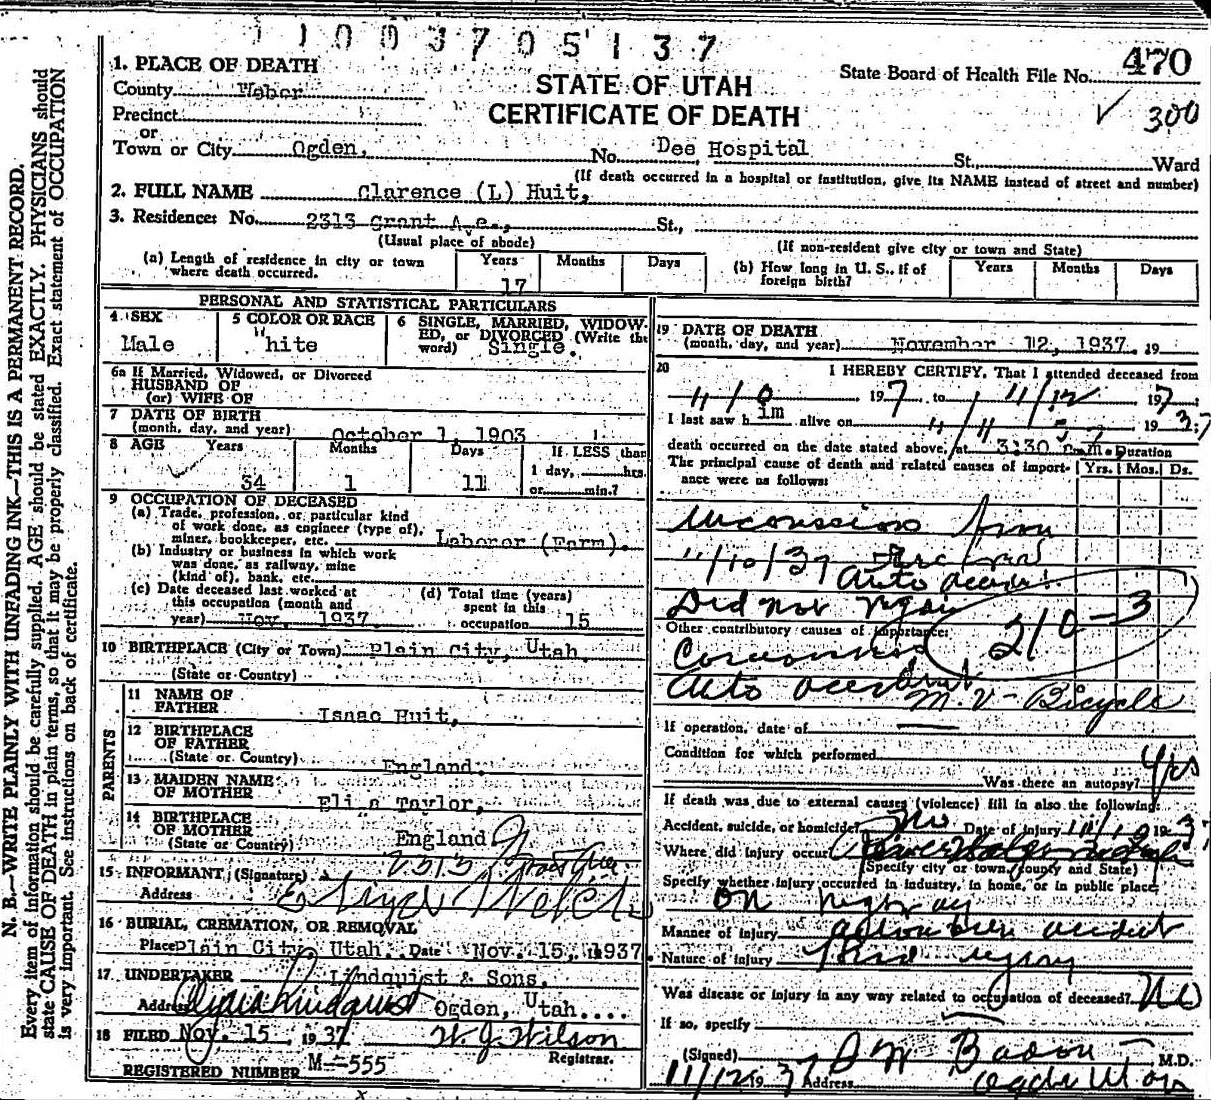 11003705137
470
State Board of Health File No.
300
STATE OF UTAH
CERTIFICATE OF DEATH
1. PLACE OF DEATH
County Weber
Precinct
or
Town or City Ogden, No. Dee Hospital St. Ward
(If death occurred in a hospital or institution, give its NAME instead of street and number)
2. FULL NAME Clarence (L) Huit,
3. Residence: No. 2313 Grant Ave., St.,
(Usual place of abode) (If non-resident give city or town and State)
(a) Length of residence in city or town where death occurred. Years 17 Months Days
(b) How long in U. S., if of foreign birth? Years Months Days
PERSONAL AND STATISTICAL PARTICULARS
4 SEX Male
5 COLOR OR RACE "hite
6 SINGLE, MARRIED, WIDOWED, or DIVORCED (Write the word) Single.
6a If Married, Widowed, or Divorced
HUSBAND OF
(or) WIFE OF
7 DATE OF BIRTH
(month, day, and year) October 1, 1903
8 AGE Years 34 Months 1 Days 11 If LESS than 1 day, hrs. or min.?
9 OCCUPATION OF DECEASED
(a) Trade, profession, or particular kind of work done, as engineer (type of), miner, bookkeeper, etc. Laborer (Farm).
(b) Industry or business in which work was done, as railway, mine (kind of), bank, etc.
(c) Date deceased last worked at this occupation (month and year) Nov. 1937.
(d) Total time (years) spent in this occupation 15
10 BIRTHPLACE (City or Town) Plain City, Utah
(State or Country)
PARENTS
11 NAME OF FATHER Isaac Huit,
12 BIRTHPLACE OF FATHER
(State or Country) England.
13 MAIDEN NAME OF MOTHER Eliza Taylor,
14 BIRTHPLACE OF MOTHER
(State or Country) England
15 INFORMANT (Signature)
Address
2313 Grant Ave.
16 BURIAL, CREMATION, OR REMOVAL
Place Plain City, Utah. Date Nov. 15, 1937
17. UNDERTAKER Lindquist & Sons,
Address Ogden, Utah....
18 FILED Nov. 15, 1937 W. J. Wilson
Registrar.
REGISTERED NUMBER M--555
19 DATE OF DEATH
(month, day, and year) November 12, 1937. 19
20 I HEREBY CERTIFY, That I attended deceased from
197 to 11/12 1937;
I last saw him alive on 1937;
death occurred on the date stated above, at 3:30 P.m. Duration
The principal cause of death and related causes of importance were as follows: Yrs. Mos. Ds.
from
11/10/37
Auto
Did not
210-3
Other contributory causes of importance:
Auto accident
M.V - Bicycle
If operation, date of
Condition for which performed
Was there an autopsy? Yes
If death was due to external causes (violence) fill in also the following:
Accident, suicide, or homicide? Date of injury 11/10 1937
Where did injury occur
(Specify city or town, county and State)
Specify whether injury occurred in industry, in home, or in public place.
on highway
Manner of injury automobile accident
Nature of injury injury
Was disease or injury in any way related to occupation of deceased? No
If so, specify
(Signed) M.D.
11/12 1937 Address Ogden Utah
N. B.—WRITE PLAINLY WITH UNFADING INK—THIS IS A PERMANENT RECORD.
Every item of information should be carefully supplied. AGE should be stated EXACTLY. PHYSICIANS should
state CAUSE OF DEATH in plain terms, so that it may be properly classified. Exact statement of OCCUPATION
is very important. See instructions on back of certificate.